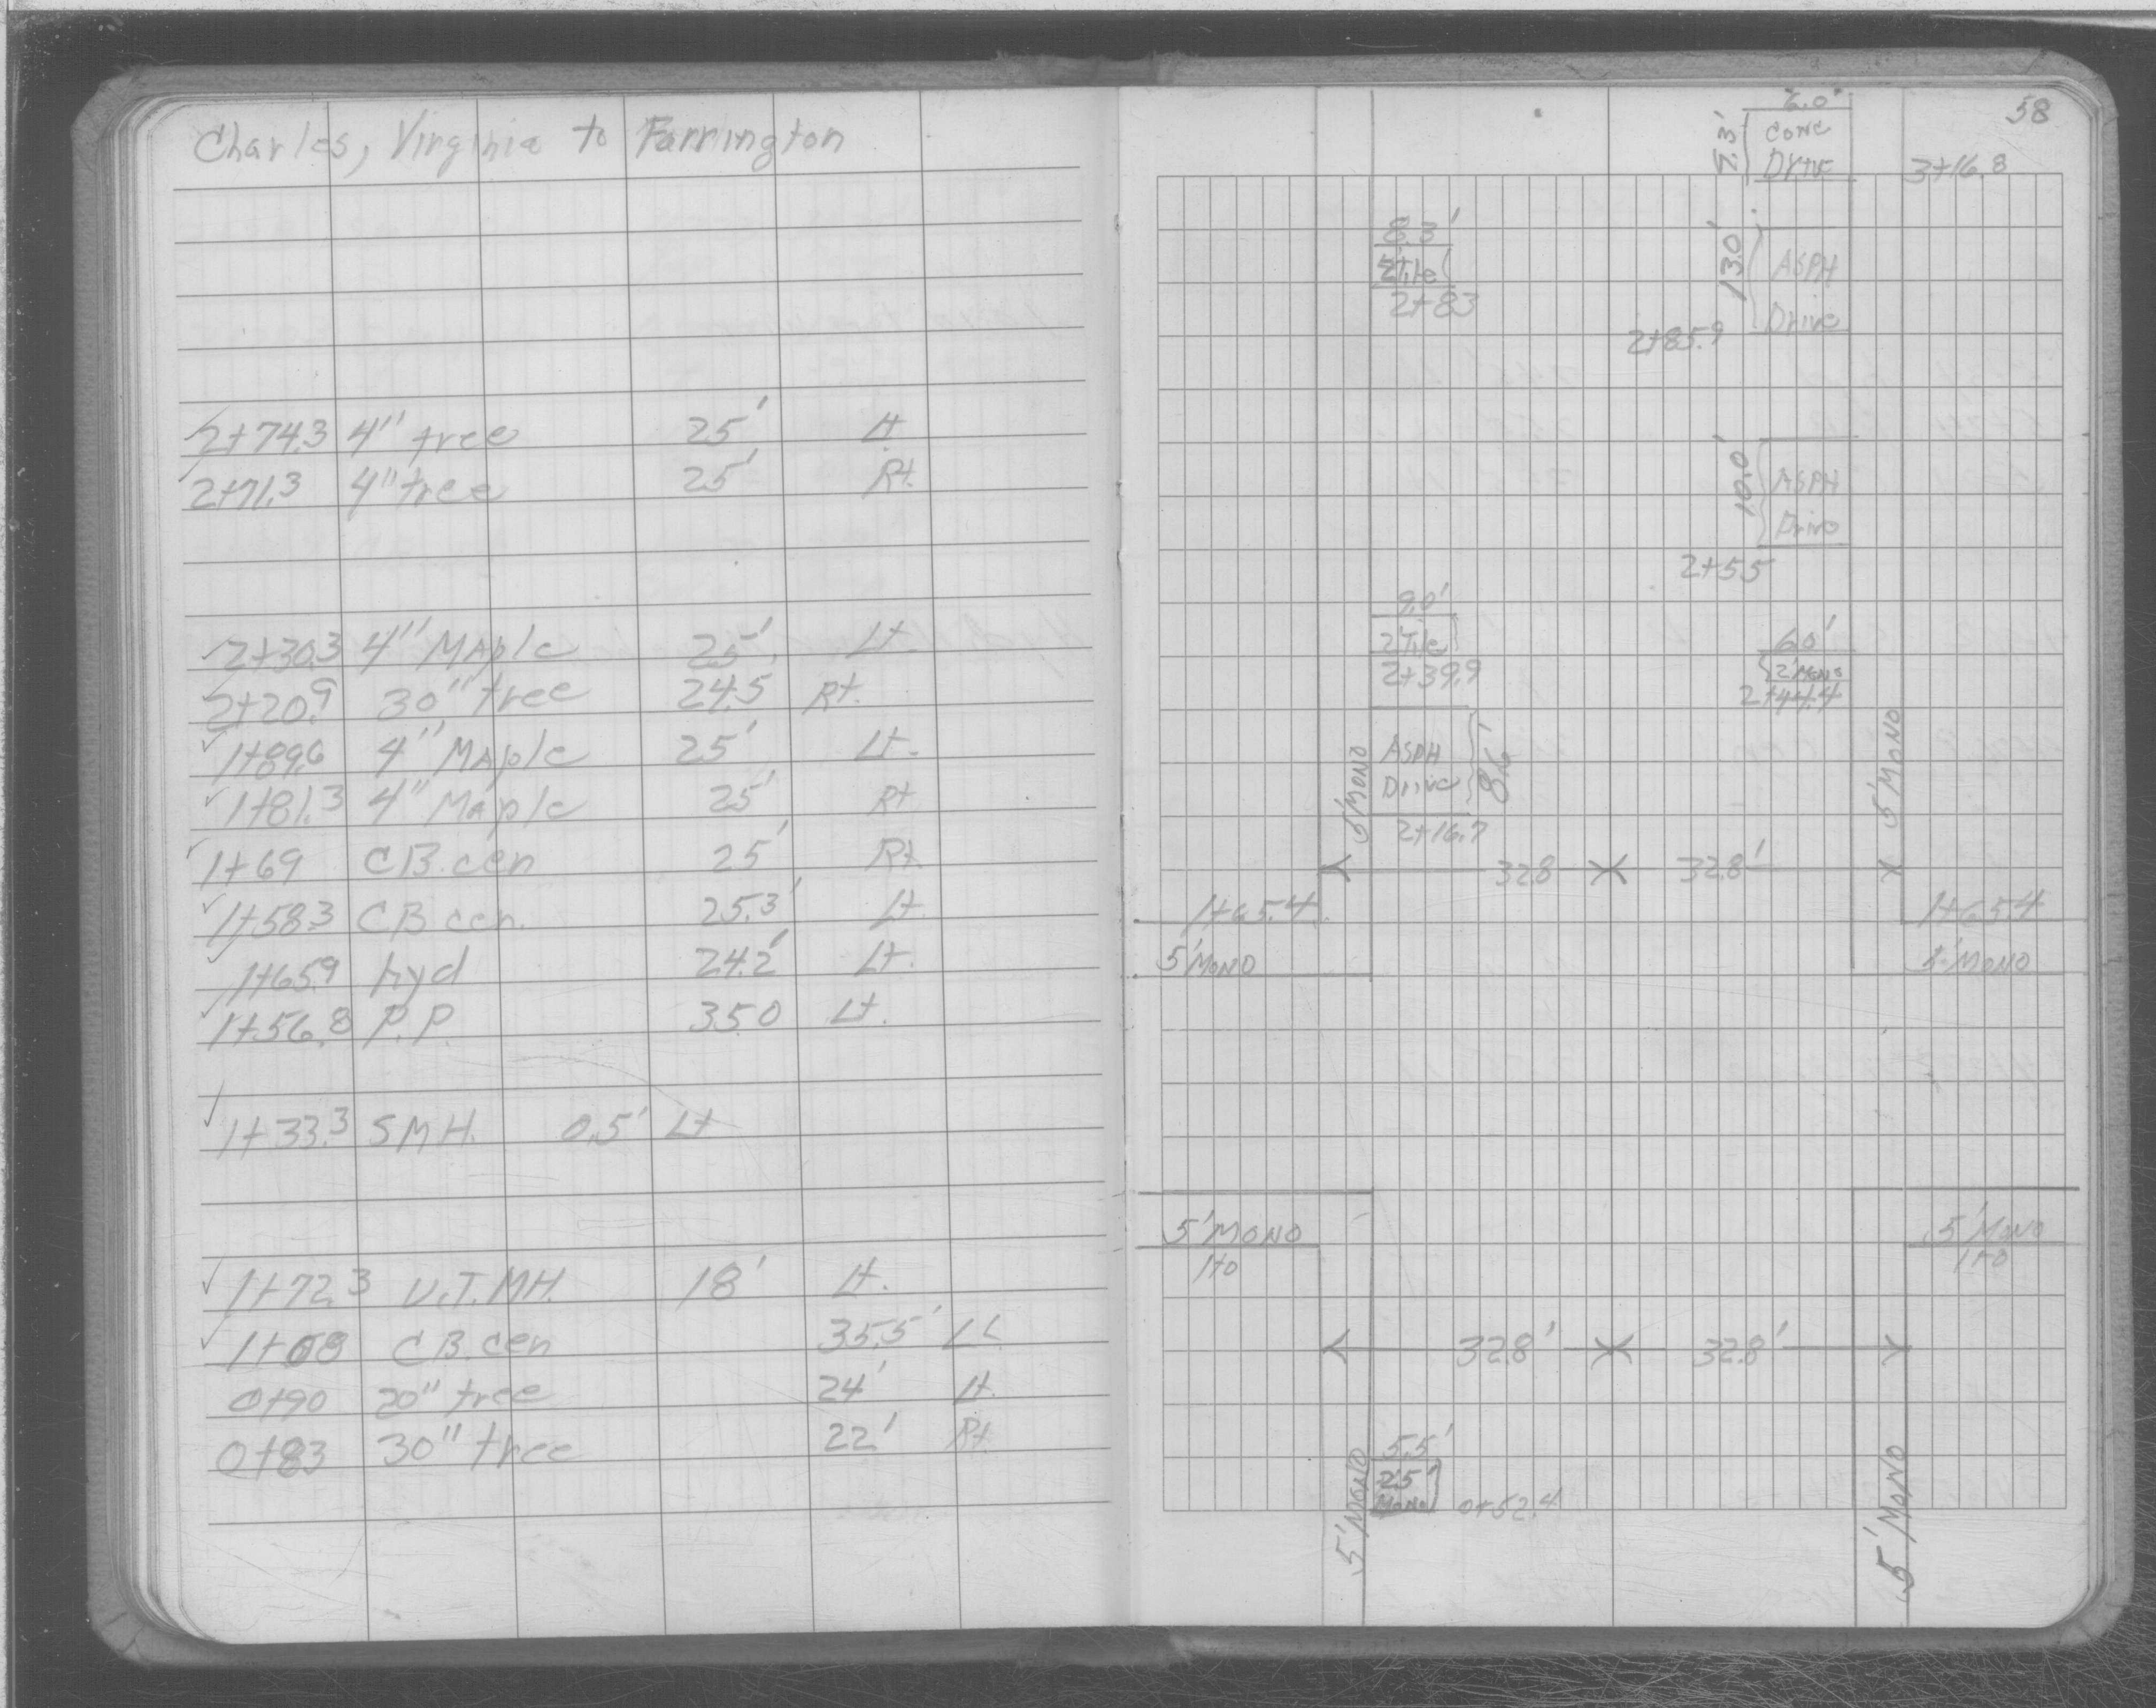 Charles, Virginia to Farrington
2+74.3 4" tree 25' Lt
2+71.3 4" tree 25' Rt.
2+30.3 4" Maple 25' Lt.
2+20.9 30" tree 24.5 Rt.
1+89.6 4" Maple 25' Lt.
1+81.3 4" Maple 25' Rt
1+69 C.B. cen 25' Rt.
1+58.3 C B cen. 25.3' Lt.
1+65.9 hyd 24.2' Lt.
1+56.8 P.P. 35.0 Lt.
1+33.3 S M H. 0.5' Lt
1+72.3 U.T.MH. 18' Lt.
1+08 C B. cen 35.5' Lt
0+90 20" tree 24' Lt.
0+83 30" tree 22' Rt.
58
6.0'
CONC
Drive
3+16.8
8.3'
2'Tile
2+83
13.0'
ASPH
Drive
2+85.9
10.0'
ASPH
Drive
2+55
9.0'
2'Tile
2+39.9
6.0'
2'MONO
2+44.4
5'MONO
ASPH
Drive
8.6'
5'MONO
2+16.7
32.8 32.8'
1+65.4 1+65.4
5'MONO 5'MONO
5'MONO 5'MONO
1+0 1+0
32.8' 32.8'
5'MONO
5.5'
2.5'
MONO
0+52.4
5'MONO